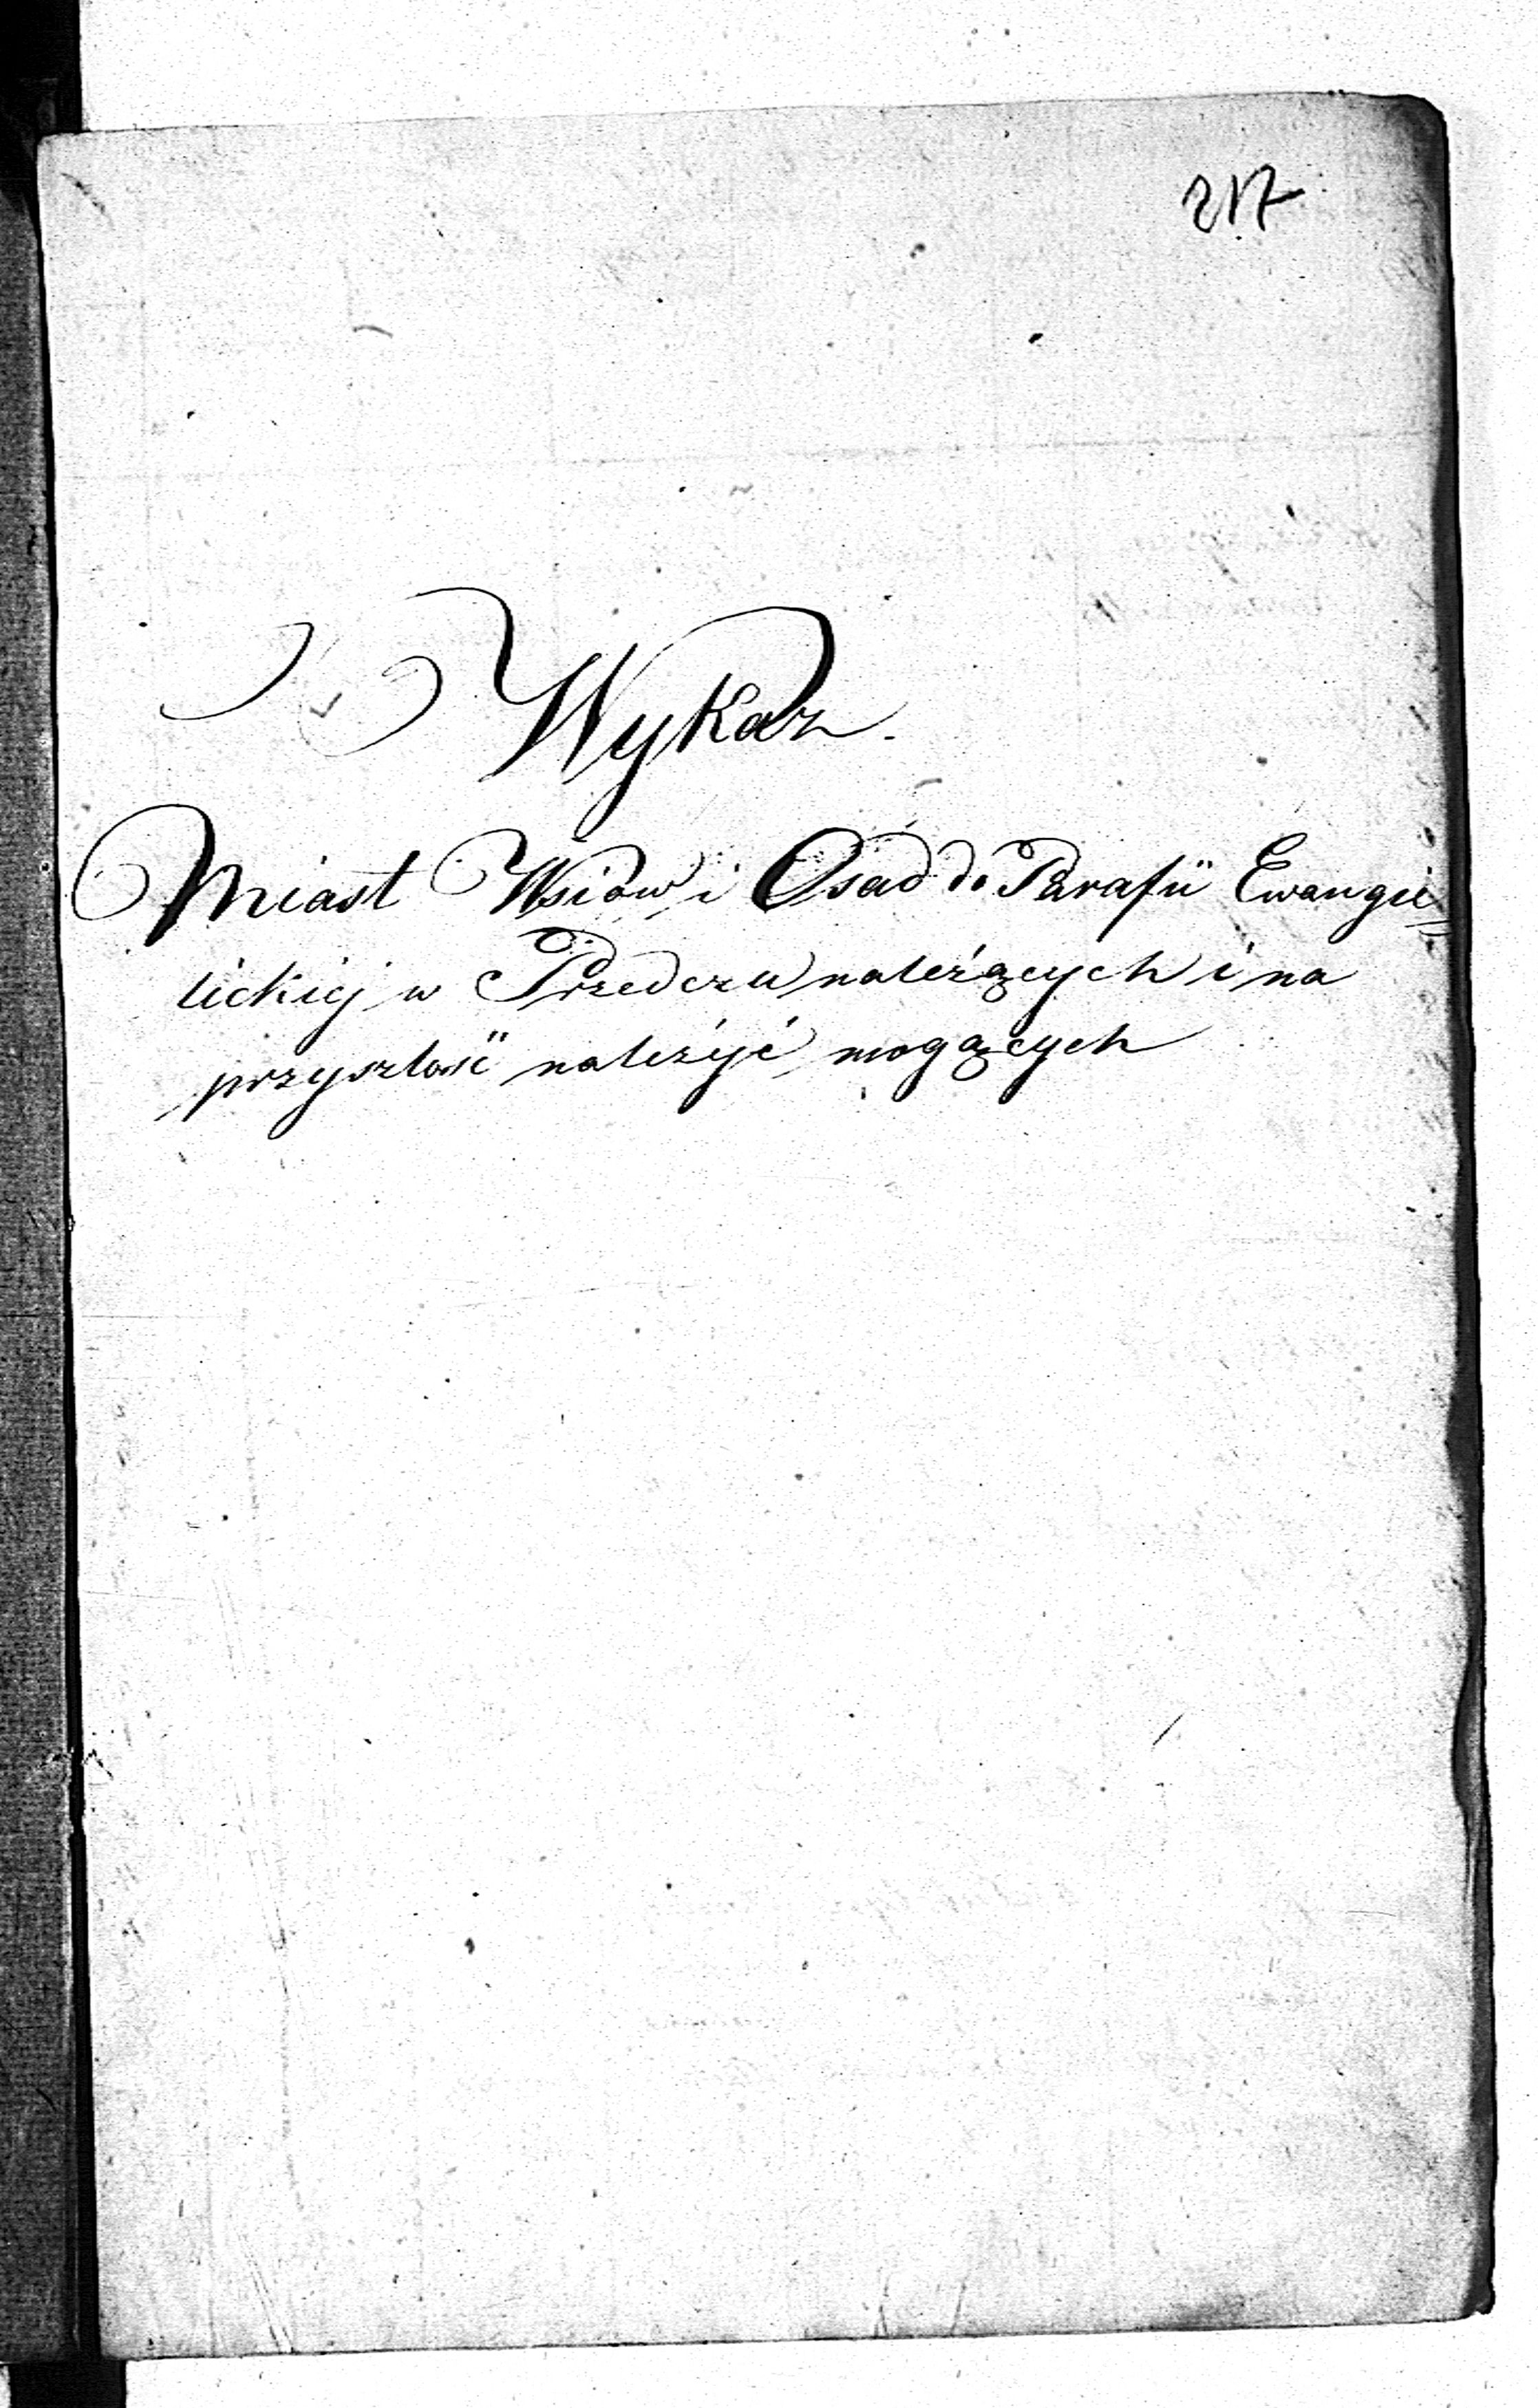 217
Wykaz.
Miast Wsiów i Osad do Parafii Ewangie=
lickiej w Przedczu należących i na
przyszłość należyć mogących